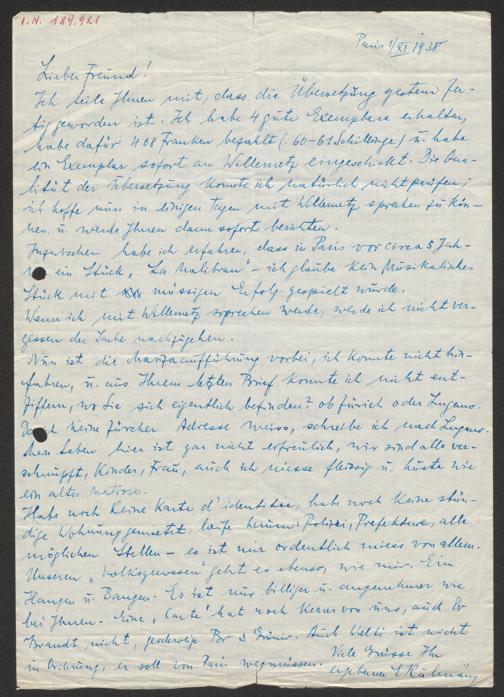 I.N. 189.921
Paris 1/XI 1938
Lieber Freund!
Ich teile Ihnen mit, dass die Übersetzung gestern fer-
tig geworden ist. Ich habe 4 gute Exemplare erhalten,
habe dafür 408 Franken bezahlt (60-61 Schillinge) u. habe
ein Exemplar sofort an Willemetz eingeschickt. Die Qua-
lität der Übersetzung konnte ich natürlich nicht prüfen;
ich hoffe nun in einigen Tagen mit Willemetz sprechen zu kön-
nen u. werde Ihnen dann sofort berichten.
Inzwischen habe ich erfahren, dass in Paris vor circa 5 Jah-
ein Stück "La Malibran" - ich glaube kein Musikalisches
Stück mit mässigen Erfolg gespielt wurde.
Wenn ich mit Willemetz sprechen werde, werde ich nicht ver-
gessen der Sache nachzugehen.
Nun ist die Marizaaufführung vorbei, ich konnte nicht hin-
fahren, u. aus Ihrem letzten Brief konnte ich nicht ent-
ziffern, wo Sie sich eigentlich befinden? ob Zürich oder Lugano.
Da ich keine Zürcher Adresse weiss, schreibe ich nach Lugano.
Mein Leben hier ist gar nicht erfreulich, wir sind alle ver-
schnupft, Kinder, Frau, auch ich niesse fleissig u. hüste wie
ein alter Matrose.
Habe noch keine Karte d'identitée, hab noch keine stän-
dige Wohnung gemietet, laufe herum: Polizei, Prefekture, alle
möglichen Stellen - es ist mir ordentlich mies von allem.
Unseren "Volksgenossen" geht es ebenso, wie mir. Ein
Hangen u. Bangen. Es ist nur billiger u. angenehmer wie
bei Ihnen. Eine "Carte" hat noch keiner von uns, auch
Brandt nicht, geschweige Bor Auch Welti ist nicht
in Ordnung, er soll von Paris wegmüssen.
Viele Grüsse Ihr